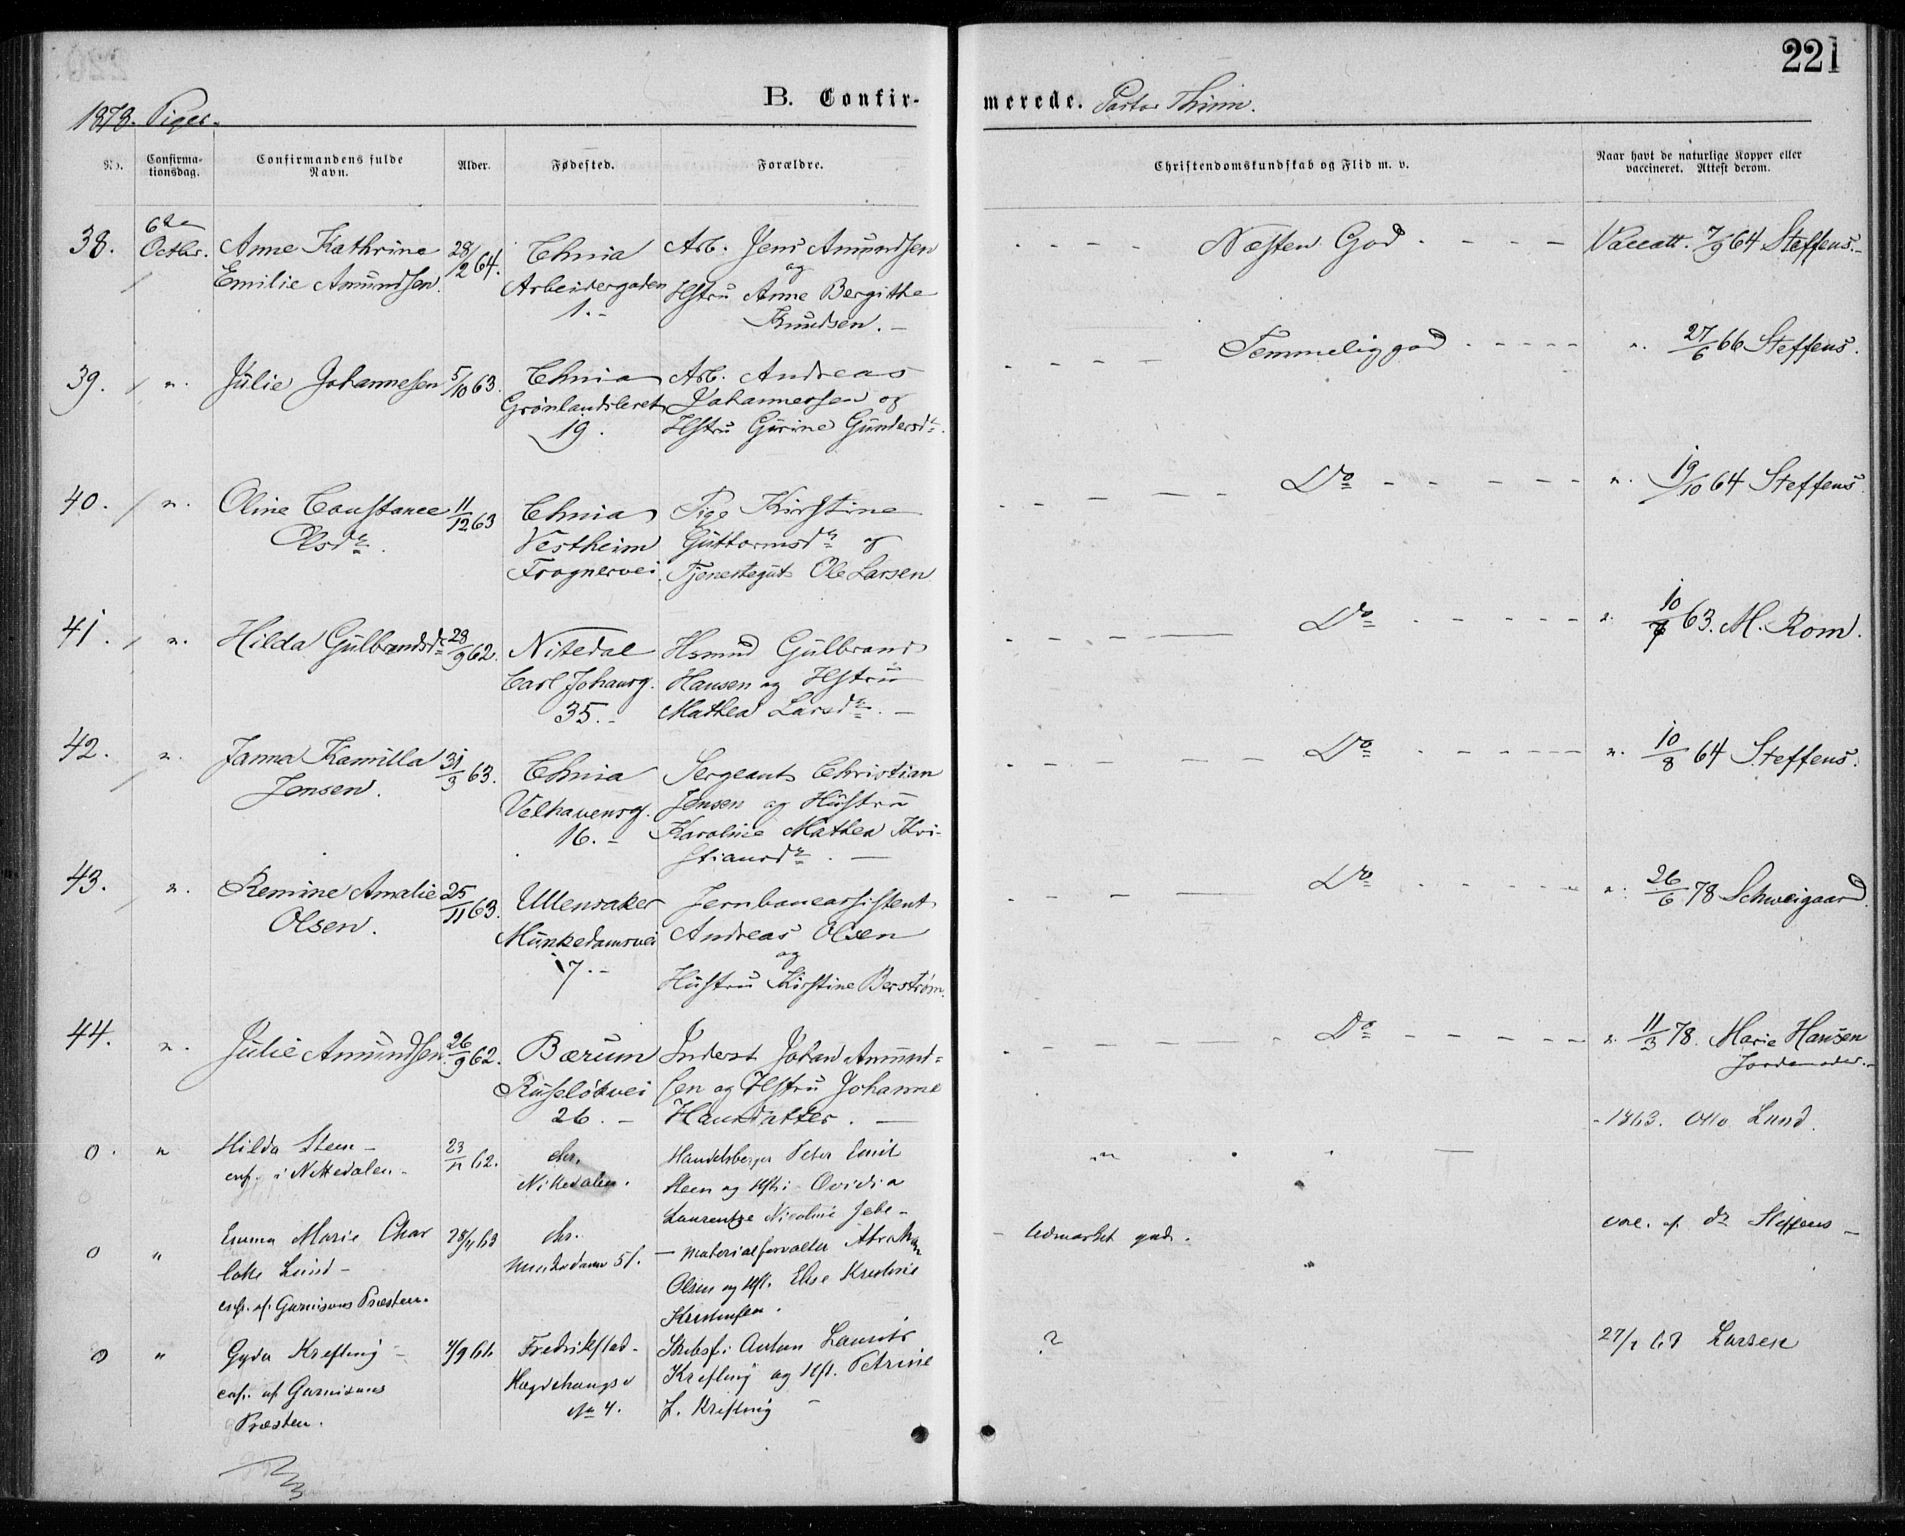 221
B. Confir-
merede. Pastor Thrim.
1878. Piger.
No.
Confirma-
tionsdag.
Confirmandens fulde
Navn.
Alder.
Fødested.
Forældre.
Christendomskundskab og Flid m. v.
Naar havt de naturlige Kopper eller
vaccineret. Attest derom.
38. 6te Octbr. Anne Kathrine 28/2 64. Chnia Arb. Jens Amundsen
Emilie Amundsen. Arbeidergaden og
1.- Hstru Anne Bergitthe
Knudsen.-
Næsten God Vaccatt. 7/9 64 Steffens.-
39. " Julie Johannesen 5/10 63. Chnia Arb. Andreas
Grønlandsleret Johannersen og
19. Hstru Gurine Gundersdr.
Temmelig god ". 27/6 66 Steffens.
40. " Oline Constance 11/12 63 Chnia Pige Kirstine
Olsdr. Vestheim Guttormsdr og
Frognervei. Tjenestegut Ole Larsen
Do ". 19/10 64 Steffens.
41. " Hilda Gulbrandsdr 28/9 62. Nitedal Hsmnd Gulbrand
Carl Johansg. Hansen og Hstru
35.- Mathea Larsdr.-
Do ". 63. M. Rom.
42. " Janna Kamilla 31/3 63. Chnia Sergeant Christian
Jensen. Velhavensg. Jensen og Hustru
16.- Karoline Mathea Kri-
stiansdr.
Do ". 10/8 64 Steffens.
43. " Remine Amalie 25/11 63. Ullensaker Jernbaneassistent
Olsen. Munkedamsvei Andreas Olsen
17.- og
Hustru Kirstine Berstrøm.
Do ". 26/6 78 Schweigaard.
44. " Julie Amundsen 26/9 62. Bærum Inderst Johan Amund-
Ruseløkvei sen og Hstru Johanne
26.- Hansdatter.-
Do ". 11/3 78. Marie Hansen
Jordemoder.-
0. " Hilda Steen- 23/11 62. chr. Handelsborger Peter Emil
cnf. i Nittedalen- Nittedalen. Steen og Hstr: Ovidia
Laurentze Nicoline
- 1863. Otto Lund.
0 " Emma Marie Char 28/4 63 chr. - Materialforvalter Abraham
lotte Lund- Munkedamsv 51. Olsen og Hst. Else Kristine
cnf. af Garnisons Præsten. Kristensen.
- Udmærket god. vac. af dr Steffens-
0 " Gyda Krefting- 4/9 61. Fredrikstad- Skibsf: Anton Laurits
cnf. af Garnisons Hægdehaugsv Krefting og Hst. Petrine
Præsten. No 4. L. Krefting-
? 27/7 63 Larsen